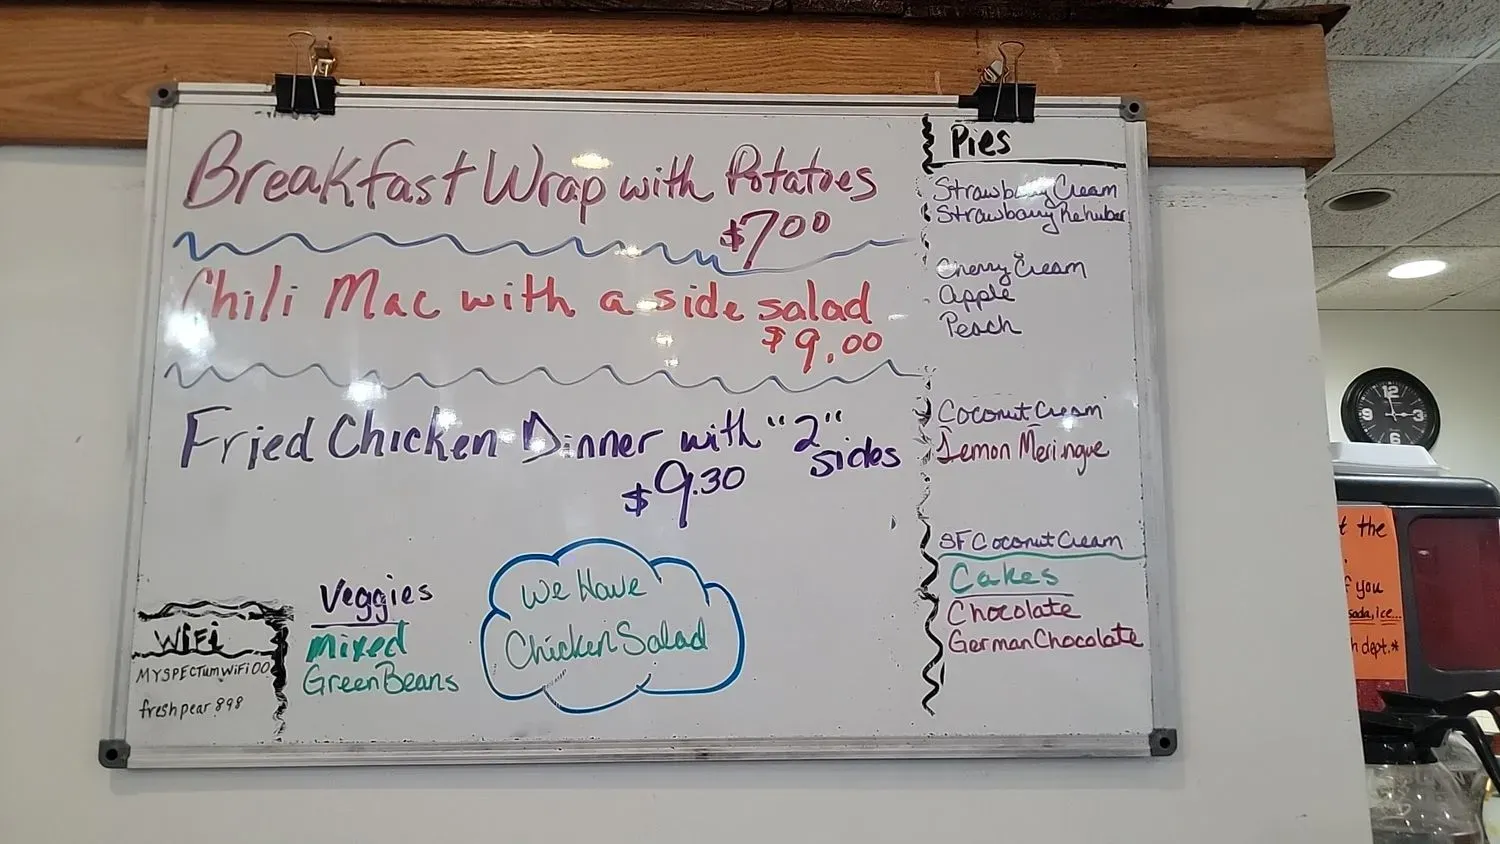 Breakfast Wrap with Potatoes
$7.00
Chili Mac with a side salad
$9.00
Fried Chicken Dinner with "2" sides
$9.30
Veggies
mixed
Green Beans
We Have
Chicken Salad
WiFi
MYSPECTumWiFi00
freshpear898
Pies
Strawberry Cream
Strawbarry Rehubar
Cherry Cream
Apple
Peach
Coconut Cream
Lemon Meringue
SF Coconut Cream
Cakes
Chocolate
German Chocolate
12
3
6
9
t the
f you
sada, ice...
h dept.*